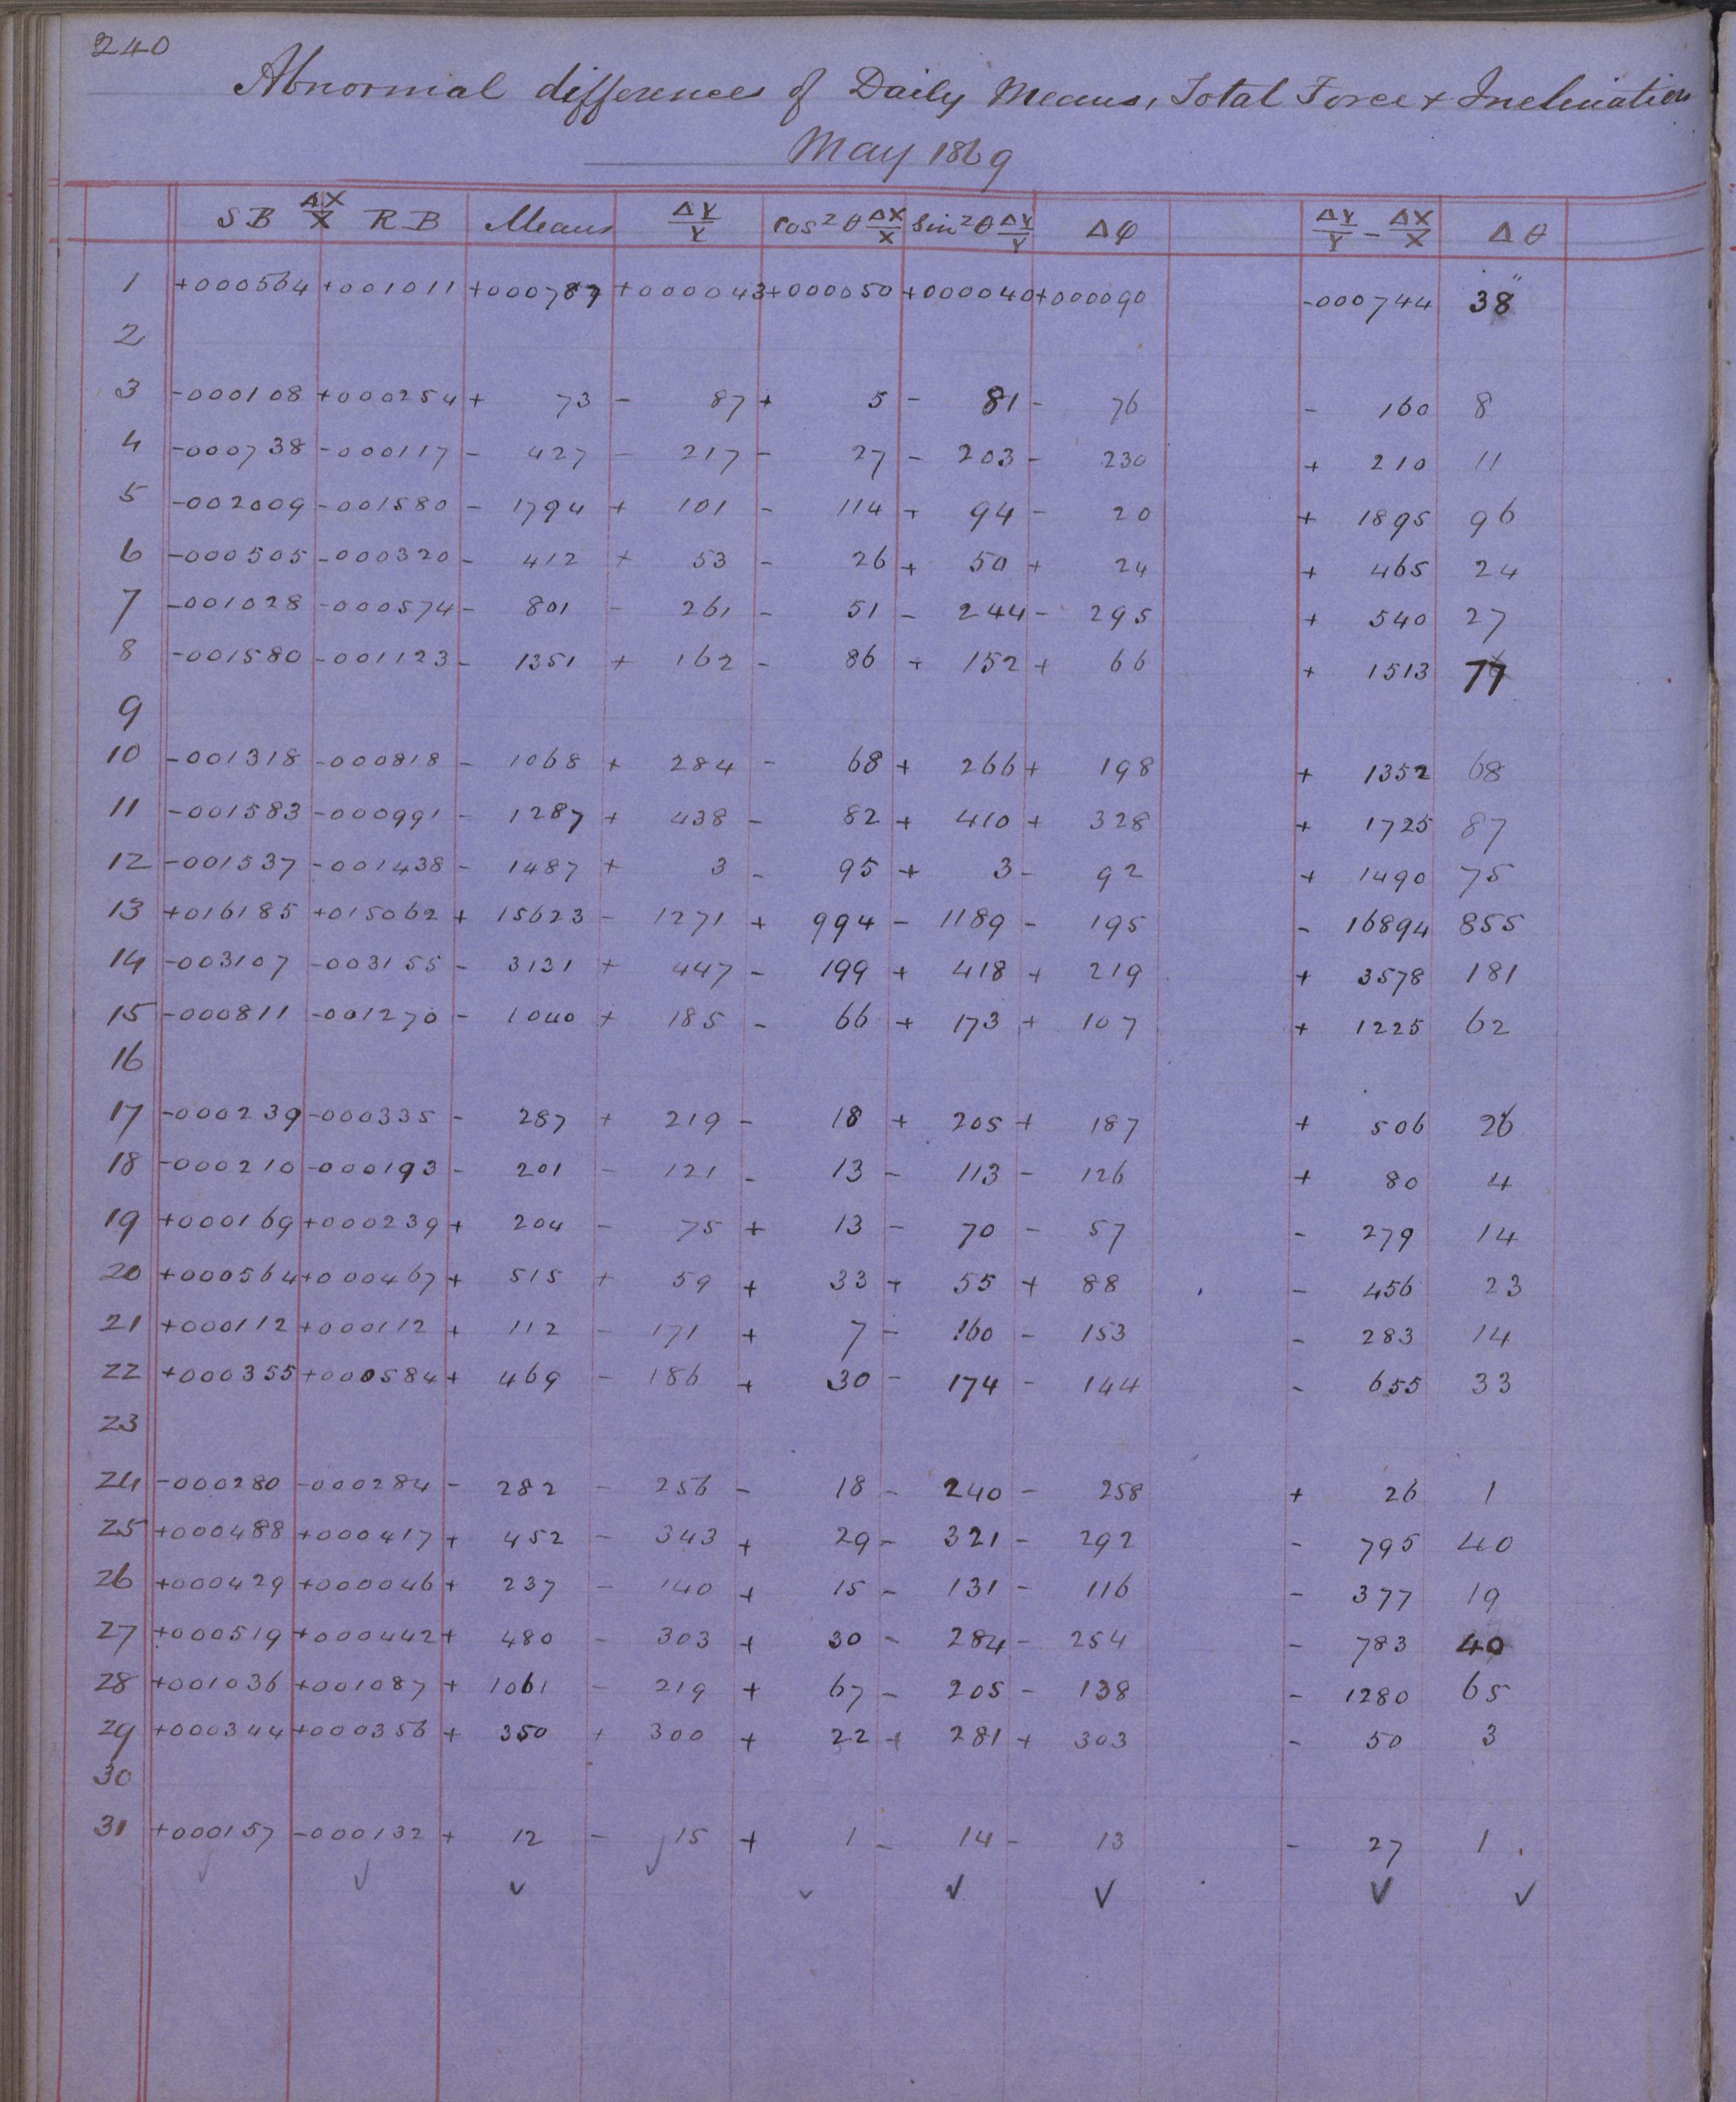 240
Abnormal differences of Daily Means, Total Force & Inclination
May 1869
SB ΔX/X RB Means ΔY/Y cos²θ ΔX/X sin²θ ΔY/Y Δφ ΔY/Y − ΔX/X Δθ
1 +000564 +001011 +000787 +000043 +000050 +000040 +000090 -000744 38"
2
3 -000108 +000254 + 73 - 87 + 5 - 81 - 76 - 160 8
4 -000738 -000117 - 427 - 217 - 27 - 203 - 230 + 210 11
5 -002009 -001580 - 1794 + 101 - 114 + 94 - 20 + 1895 96
6 -000505 -000320 - 412 + 53 - 26 + 50 + 24 + 465 24
7 -001028 -000574 - 801 - 261 - 51 - 244 - 295 + 540 27
8 -001580 -001123 - 1351 + 162 - 86 + 152 + 66 + 1513 77
9
10 -001318 -000818 - 1068 + 284 - 68 + 266 + 198 + 1352 68
11 -001583 -000991 - 1287 + 438 - 82 + 410 + 328 + 1725 87
12 -001537 -001438 - 1487 + 3 - 95 + 3 - 92 + 1490 75
13 +016185 +015062 + 15623 - 1271 + 994 - 1189 - 195 - 16894 855
14 -003107 -003155 - 3131 + 447 - 199 + 418 + 219 + 3578 181
15 -000811 -001270 - 1040 + 185 - 66 + 173 + 107 + 1225 62
16
17 -000239 -000335 - 287 + 219 - 18 + 205 + 187 + 506 26
18 -000210 -000193 - 201 - 121 - 13 - 113 - 126 + 80 4
19 +000169 +000239 + 204 - 75 + 13 - 70 - 57 - 279 14
20 +000564 +000467 + 515 + 59 + 33 + 55 + 88 - 456 23
21 +000112 +000112 + 112 - 171 + 7 - 160 - 153 - 283 14
22 +000355 +000584 + 469 - 186 + 30 - 174 - 144 - 655 33
23
24 -000280 -000284 - 282 - 256 - 18 - 240 - 258 + 26 1
25 +000488 +000417 + 452 - 343 + 29 - 321 - 292 - 795 40
26 +000429 +000046 + 237 - 140 + 15 - 131 - 116 - 377 19
27 +000519 +000442 + 480 - 303 + 30 - 284 - 254 - 783 40
28 +001036 +001087 + 1061 - 219 + 67 - 205 - 138 - 1280 65
29 +000344 +000356 + 350 + 300 + 22 + 281 + 303 - 50 3
30
31 +000157 -000132 + 12 - 15 + 1 - 14 - 13 - 27 1
✓ ✓ ✓ ✓ ✓ ✓ ✓ ✓ ✓